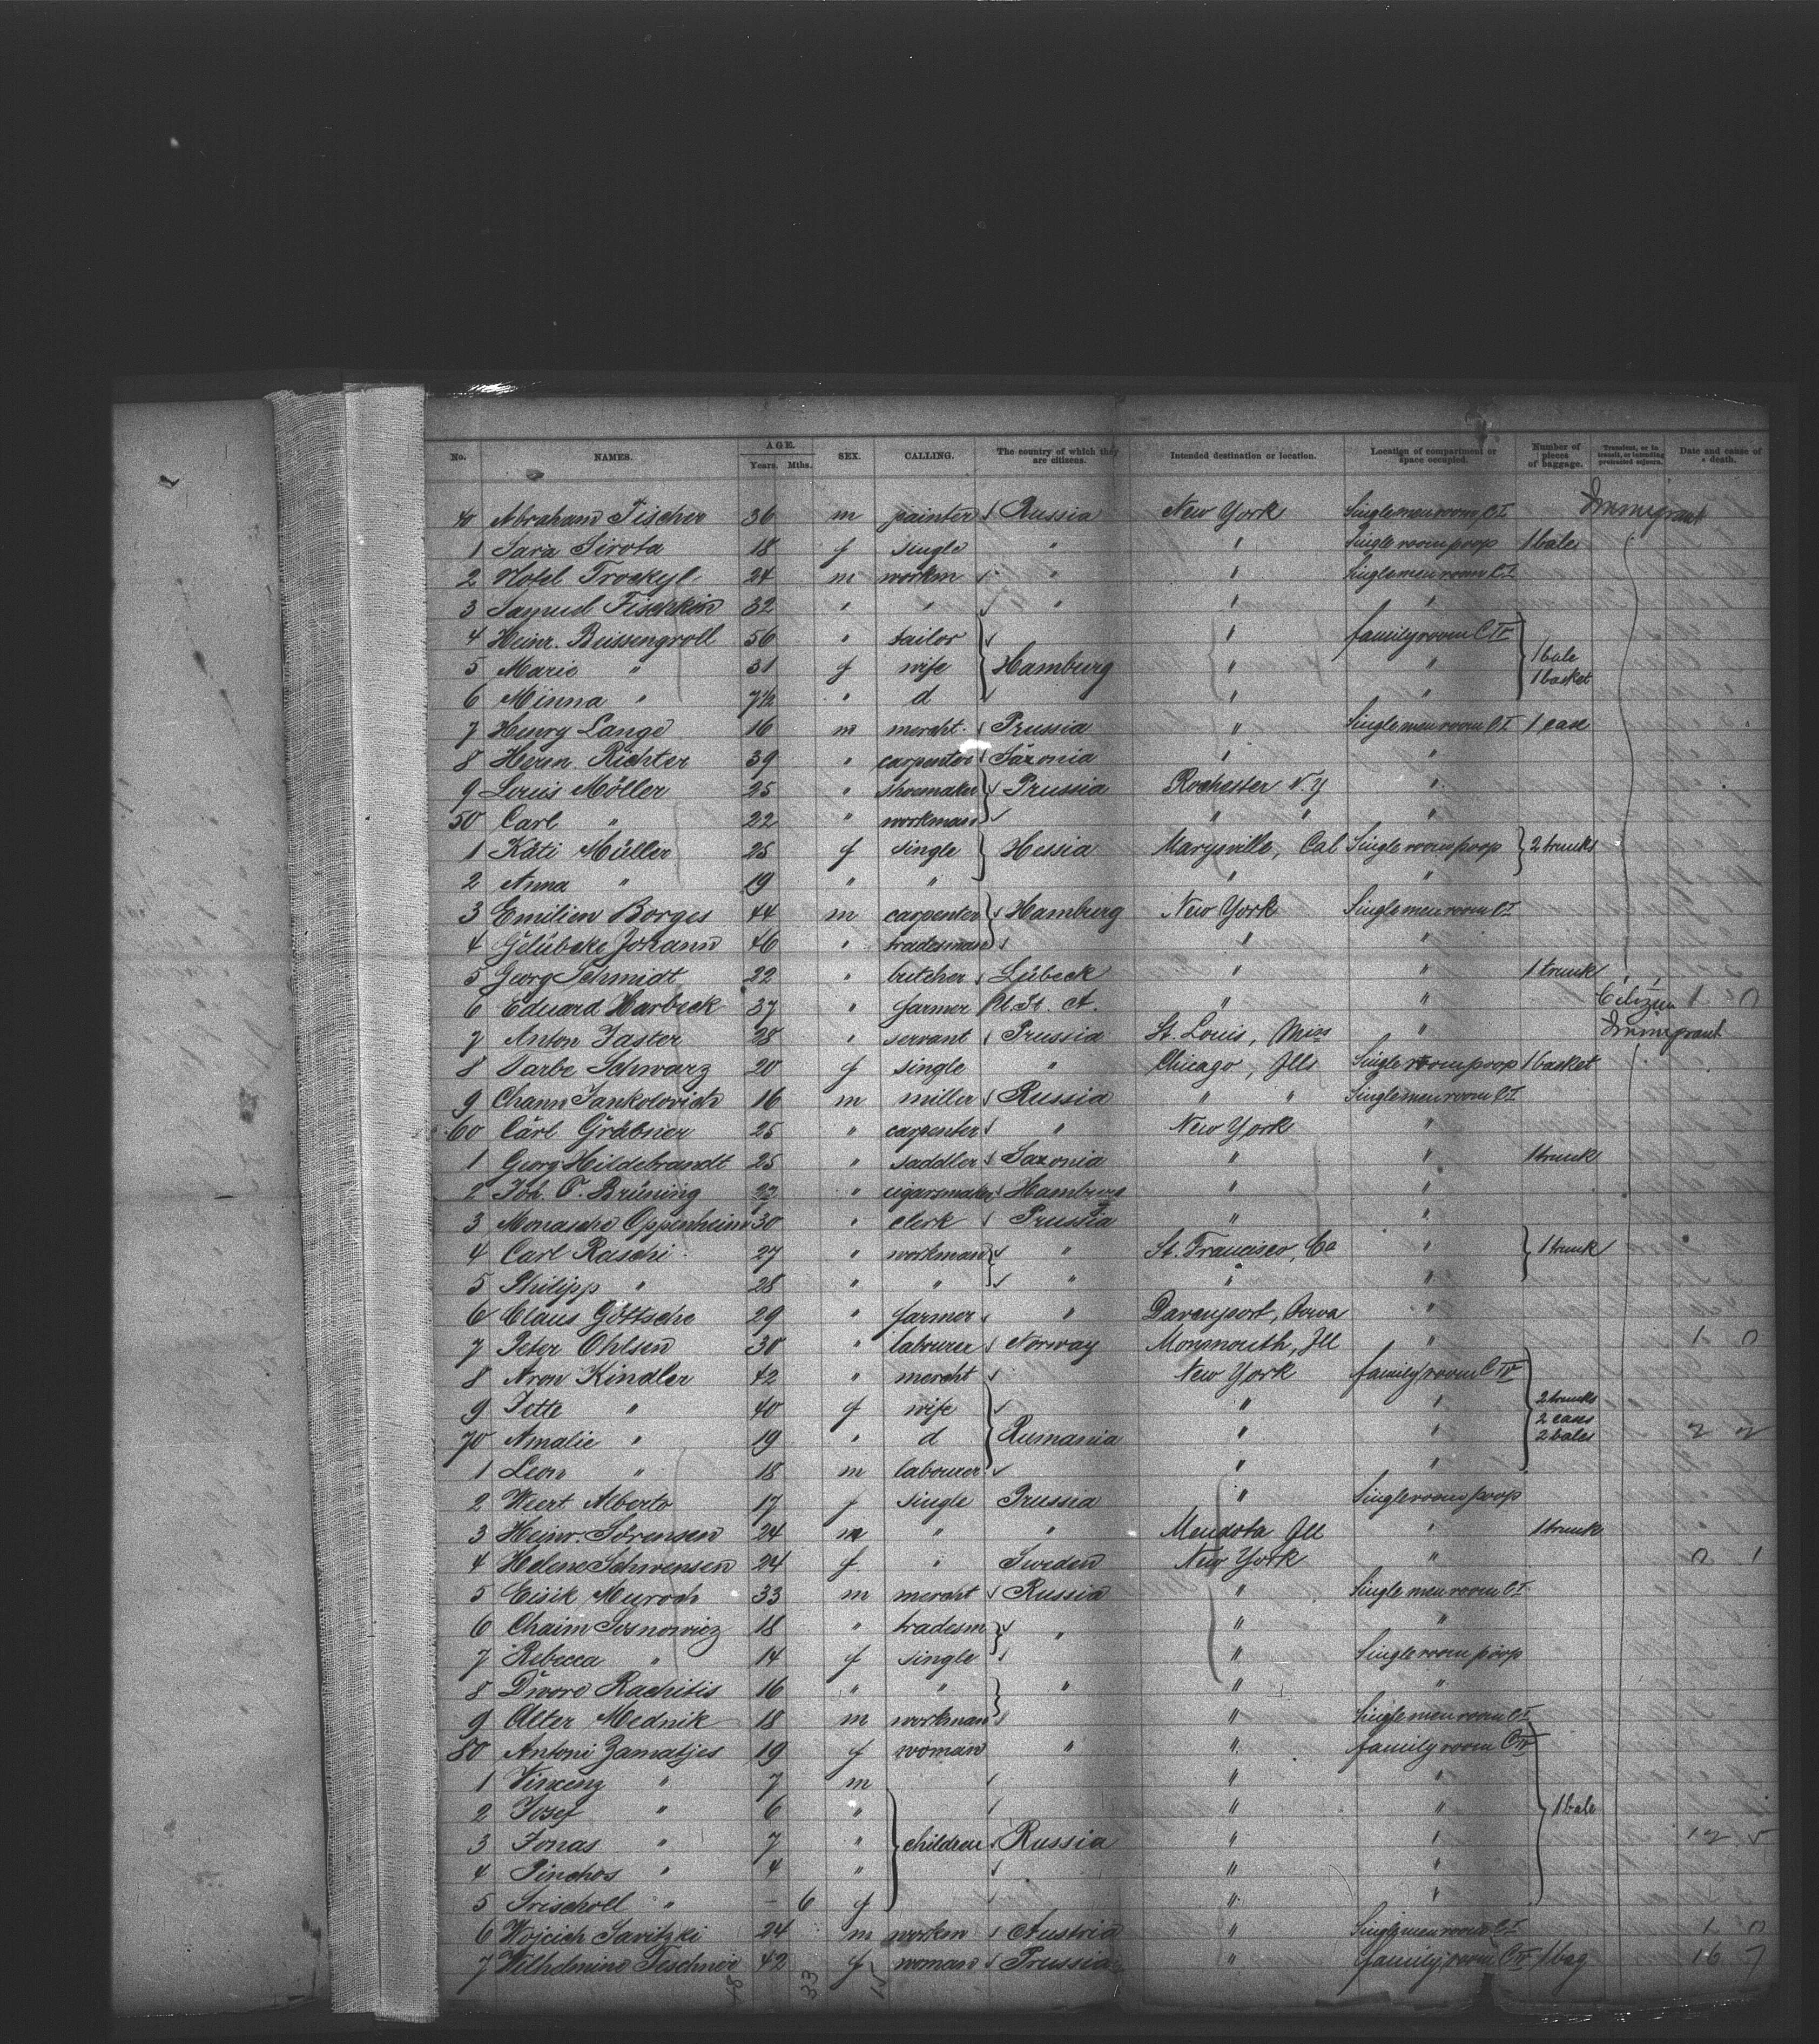 No. NAMES. AGE. Years. Mths. SEX. CALLING. The country of which they are citizens. Intended destination or location. Location of compartment or space occupied. Number of pieces of baggage. Transient, or in transit, or intending protracted sojourn. Date and cause of death.
40 Abraham Fischer 36 m painter Russia New York Single men room C I Immigrant
1 Sara Sirota 18 f single " " Single room poop 1 bale
2 Notel Trockyl 24 m workm " " Single men room C I
3 Samuel Fischkin 32 " " " " "
4 Heinr. Beissengroll 56 " tailor " family room C IV
5 Marie " 31 f wife Hamburg " " 1 bale 1 basket
6 Minna " 7½ " d " "
7 Henry Lange 16 m mercht. Prussia " Single men room C I 1 case
8 Herm. Richter 39 " carpenter Saxonia " "
9 Louis Möller 25 " shoemaker Prussia Rochester N.Y "
50 Carl " 22 " workman " " "
1 Käti Müller 25 f single Hessia Marysville, Cal Single room poop 2 trunks
2 Anna " 19 " " " "
3 Emilien Borges 44 m carpenter Hamburg New York Single men room C I
4 Gelübcke Johann 46 " tradesman " "
5 Georg Schmidt 22 " butcher Lübeck " " 1 trunk
6 Eduard Harbeck 37 " farmer U. St. A. " " Citizen 1 0
7 Anton Faster 28 " servant Prussia St. Louis, Miss " Immigrant
8 Sarbe Schwarz 20 f single " Chicago, Ills Single room poop 1 basket
9 Chann Jankolovich 16 m miller Russia " " Single men room C I
60 Carl Gräbner 25 " carpenter " New York "
1 Georg Hildebrandt 25 " saddler Saxonia " " 1 trunk
2 Joh. O. Brüning 22 " cigarsmaker Hamburg " "
3 Monasche Oppenheim 30 " clerk Prussia " "
4 Carl Raschi 27 " workman " St. Francisco, Ca " 1 trunk
5 Philipp " 28 " " " " "
6 Claus Göttsche 29 " farmer " Davenport, Iowa "
7 Peter Ohlsen 30 " labourer Norway Monmouth, Ill " 1 0
8 Aron Kindler 42 " mercht New York family room C IV
9 Jette " 40 f wife " " 2 trunks 2 cases
70 Amalie " 19 " d Rumania " " 2 bales 2 2
1 Leon " 18 m labourer " "
2 Weert Alberto 17 f single Prussia " Single room poop
3 Heinr. Sörensen 24 m " " Mendota Ill " 1 trunk
4 Helene Schwensen 24 f " Sweden New York " 0 1
5 Eisik Meyroch 33 m mercht Russia " Single men room C I
6 Chaim Sosnowicz 18 " tradesm " " "
7 Rebecca " 14 f single " Single room poop
8 Dwore Rachitis 16 " " " " "
9 Alter Mednik 18 m workman " Single men room C I
80 Antoni Zamatjes 19 f woman " " family room C IV
1 Vincenz " 7 m " "
2 Josef " 6 " " " 1 bale
3 Jonas " 7 " children Russia " " 12 5
4 Pinchos " 4 " " "
5 Frischoll " – 6 f " "
6 Wojcich Savitzki 24 m workm Austria " Single men room C I 1 0
7 Wilhelmine Teschner 42 f woman Prussia " family room C IV 1 bag 16 7
48 33 15